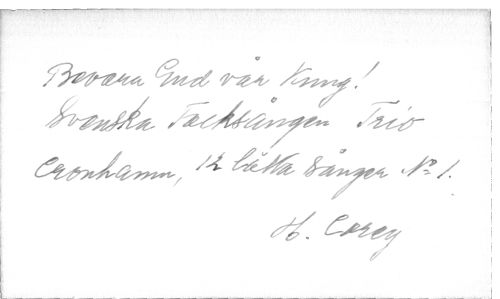 Bevara Gud vår Kung!
Svenska Folksången Trio
Cronhamn, 12 lätta Sånger No 1.
H. Corey